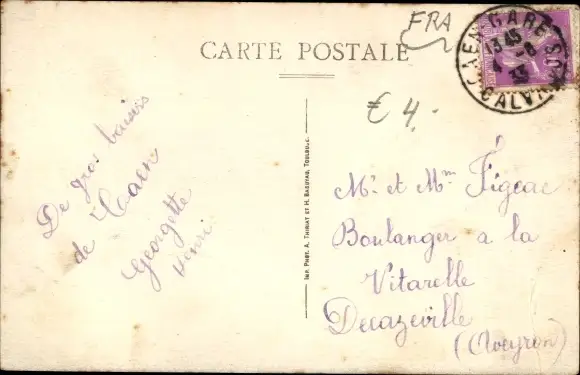 FRA
CARTE POSTALE
CAEN GARE
13 45
4 - 8
33
CALVADOS
€ 4.-
De gros baisers
de Caen
Georgette
Henri
IMP. PHOT. A. THIRIAT ET H. BASUYAU, TOULOUSE.
Mr et Mme Figeac
Boulanger a la
Vitarelle
Decazeville
(Aveyron)